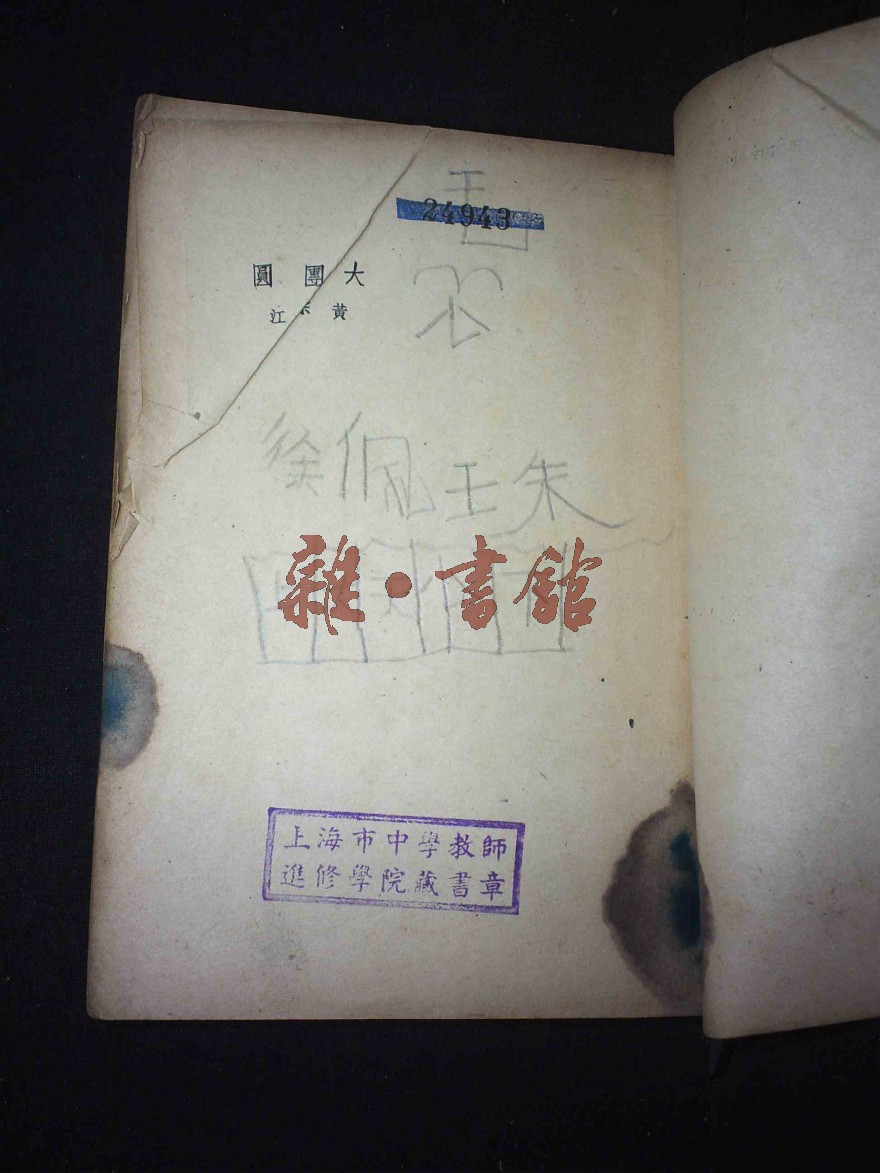 24943
大團圓
黃 江
徐佩玉朱
雜·書館
上海市中學教師
進修學院藏書章